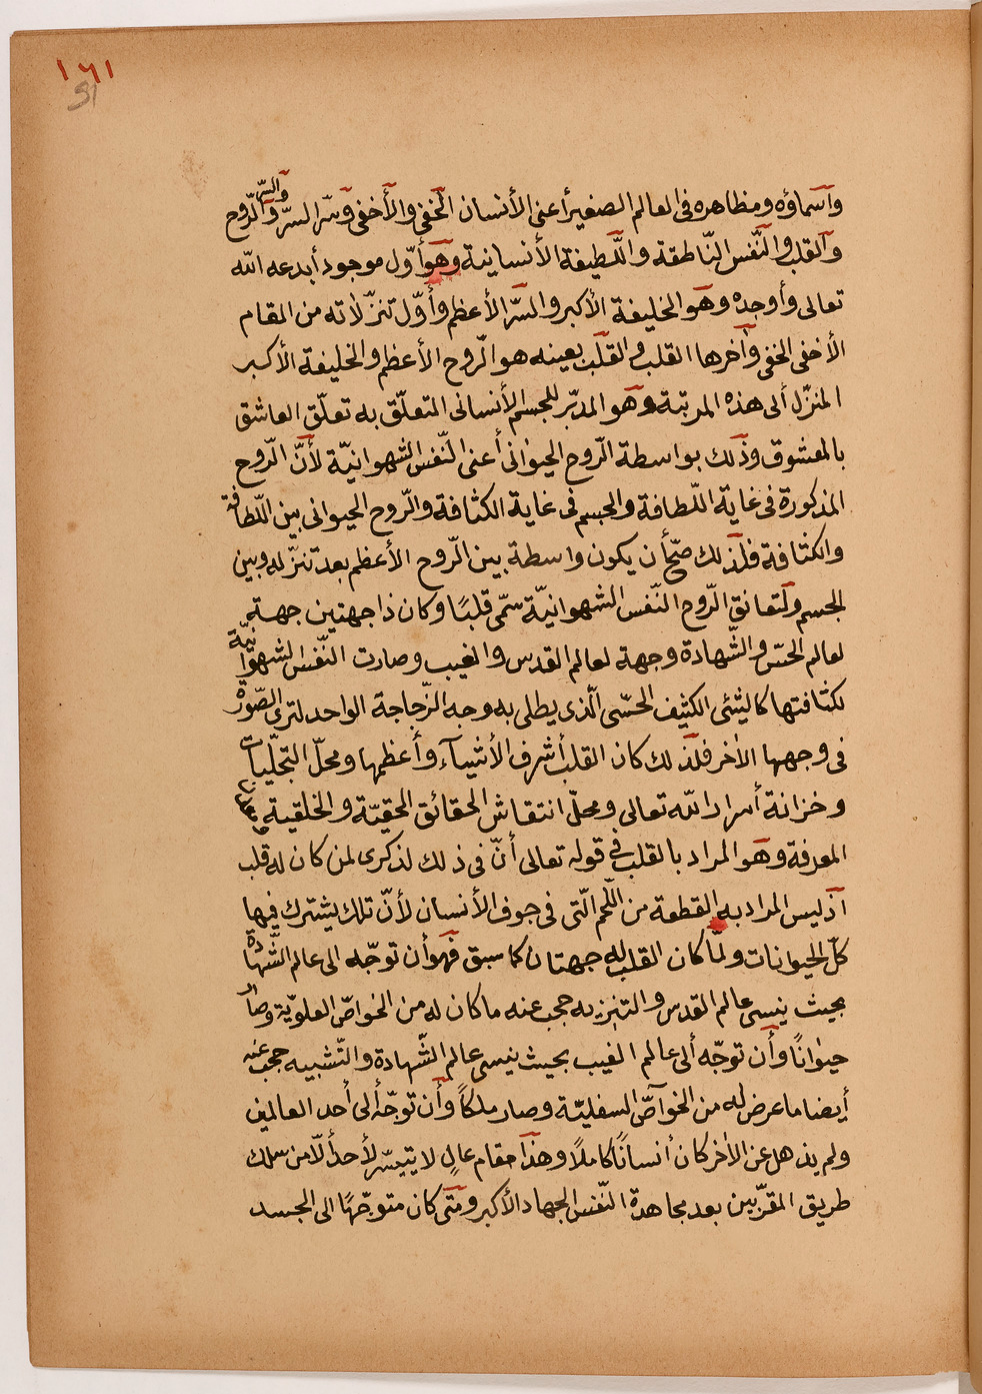 ١٦١
وأسماؤه ومظاهره فى العالم الصغير أعنى الأنسان الخفى والأخفى وسّر السرّ والسرّ والرّوح
والقلب والنّفس النّاطقة واللّطيفة الأنسانية وهو أوّل موجود أبدعه الله
تعالى وأوجده وهو الخليفة الأكبر والسرّ الأعظم وأوّل تنزّلاته من المقام
الأخفى الخفى وآخرها القلب والقلب بعينه هو الرّوح الأعظم والخليفة الأكبر
المنزّل ألى هذه المرتبة وهو المدبّر للجسم الأنسانى المتعلّق به تعلّق العاشق
بالمعشوق وذلك بواسطة الرّوح الحيوٰانى أعنى النّفس الشهوانيّة لأنّ الرّوح
المذكورة فى غاية اللّطافة والجسم فى غاية الكثافة والرّوح الحيوانى بين اللّطافة
والكثافة فلذلك صحّ أن يكون واسطة بين الرّوح الأعظم بعد تنزّله وبين
الجسم ولتعانق الرّوح النّفس الشهوانيّة سمّى قلبًا وكان ذا جهتين جهة
لعالم الحسّ والشّهادة وجهة لعالم القدس والغيب وصارت النّفس الشهوانيّة
لكثافتها كالشئى الكثيف الحسّى الّذى يطلى به وجه الزّجاجة الواحد لترى الصّورة
فى وجهها الأخر فلذلك كان القلب أشرف الأشيآء وأعظمها ومحلّ التجلّيات
وخزانة أسرار الله تعالى ومحلّ انتقاش الحقائق الحقيّة والخلقية
المعرفة وهو المراد بالقلب فى قوله تعالى أنّ فى ذلك لذكرى لمن كان له قلب
أذ ليس المراد به القطعة من اللّحم الّتى فى جوف الأنسان لأنّ تلك يشترك فيها
كلّ الحيوانات ولمّا كان القلب له جهتان كما سبق فهو أن توجّه الى عالم الشّهادة
بحيث ينسى عالم القدس والتنزيه حجب عنه ما كان له من الخواصّ العلويّة وصار
حيوٰانًا وأن توجّه ألى عالم الغيب بحيث ينسى عالم الشّهادة والتّشبيه حجب عنه
أيضا ما عرض له من الخواصّ السفليّة وصار ملكًا وأن توجّه ألى أحد العالمين
ولم يذهل عن الأخر كان أنسانًا كاملًا وهذا مقام عالٍ لا يتيسّر لأحد ألّا من سلك
طريق المقرّبين بعد مجاهدة النّفس الجهاد الأكبر ومتى كان متوجّهًا الى الجسد